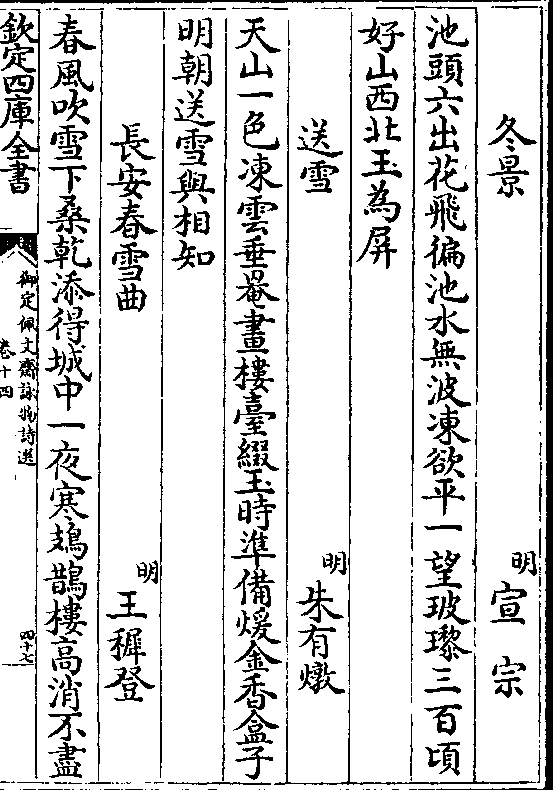 冬景
明 宣宗
池頭六出花飛徧池水無波凍欲平一望玻瓈三百頃
好山西北玉為屏
送雪
明 朱有燉
天山一色凍雲垂罨畫樓臺綴玉時準備煖金香盒子
明朝送雪與相知
長安春雪曲
明 王穉登
春風吹雪下桑乾添得城中一夜寒鳷鵲樓高消不盡
欽定四庫全書
御定佩文齋詠物詩選
卷十四
四十七